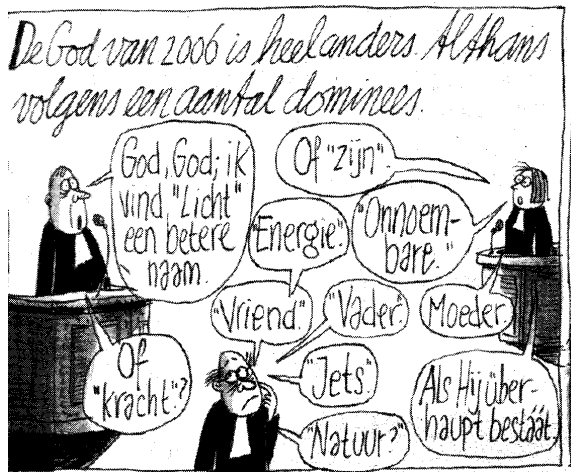 De God van 2006 is heel anders. Althans
volgens een aantal dominees.
God, God; ik
vind "Licht"
een betere
naam.
Of
"kracht"?
Of "zijn".
"Onnoem-
bare."
"Energie".
"Vriend".
"Vader".
Moeder.
"Jets".
"Natuur?"
Als Hij über-
haupt bestáát.